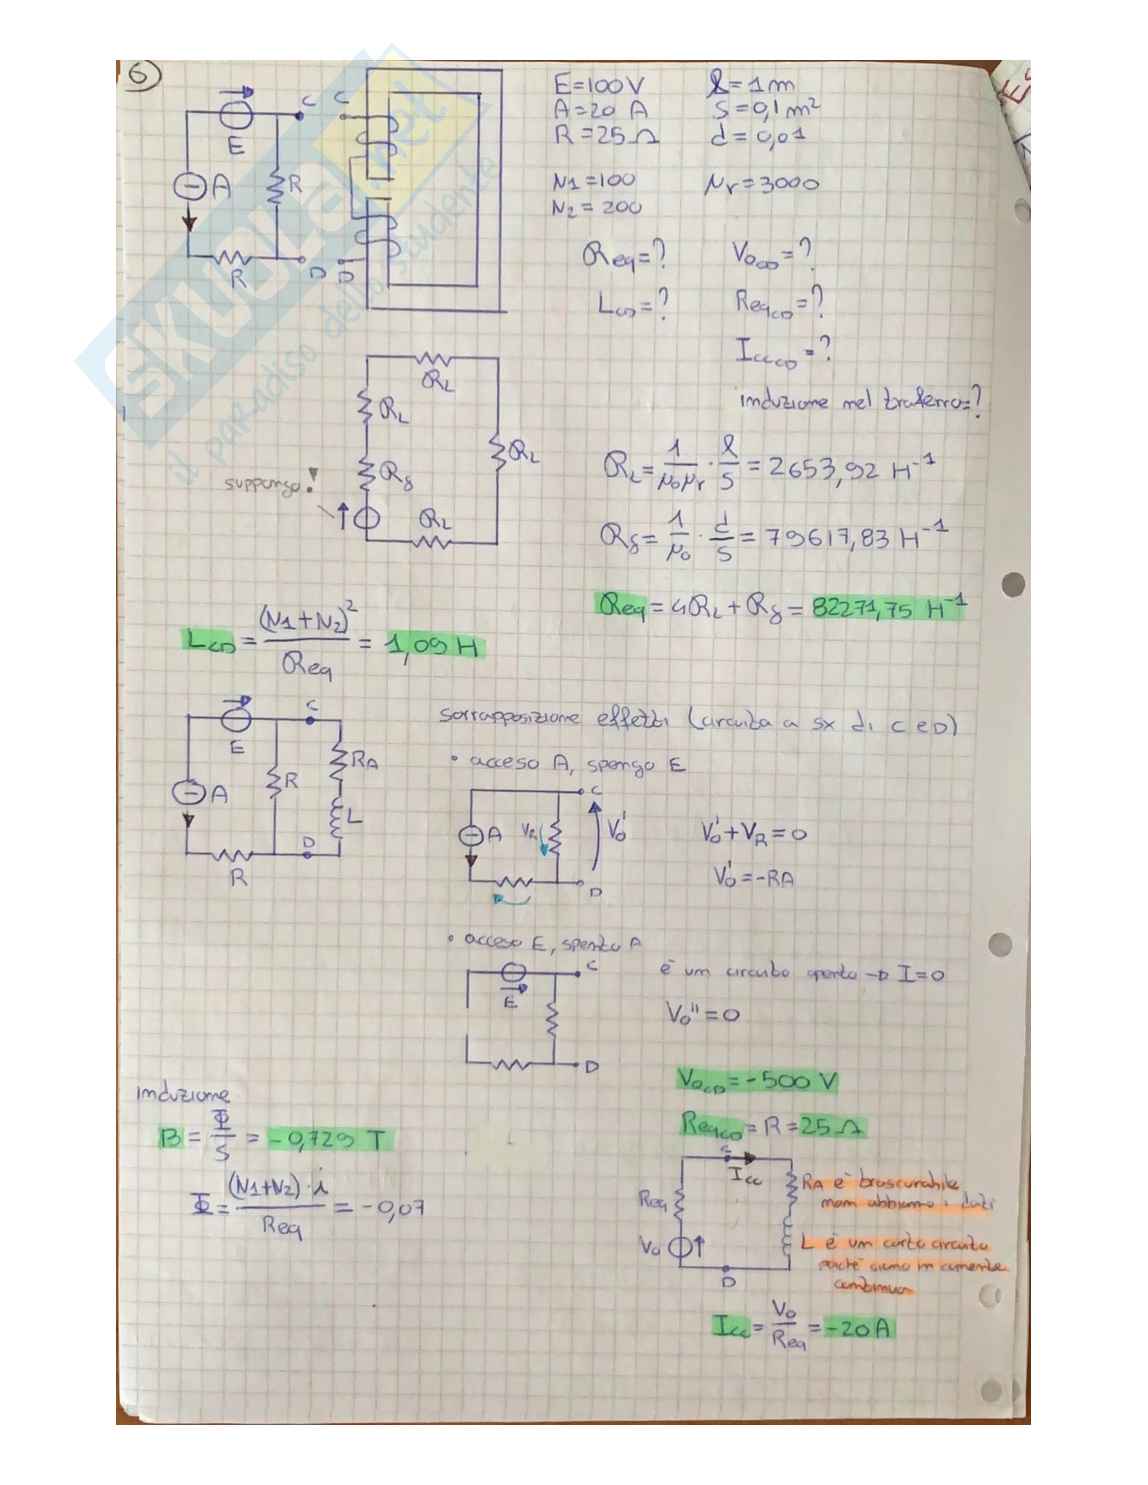 6
E=100V
l=1m
A=20 A
S=0,1 m²
R=25Ω
d=0,01
N1=100
μr=3000
N2=200
E
C
C
A
R
R
D
D
Req=?
V₀CD=?
LCD=?
ReqCD=?
IccCD=?
induzione nel traferro=?
RL
RL
Rδ
RL
RL
suppongo!
RL = 1/μ₀μr · l/S = 2653,92 H⁻¹
Rδ = 1/μ₀ · d/S = 79617,83 H⁻¹
Req = 4RL + Rδ = 82271,75 H⁻¹
LCD = (N1+N2)²/Req = 1,09 H
E
C
A
R
RA
L
D
R
sovrapposizione effetti (circuito a sx di C e D)
• acceso A, spengo E
C
A
VR
V₀'
D
V₀'+VR=0
V₀'=-RA
• acceso E, spento A
C
E
D
è un circuito aperto → I=0
V₀''=0
V₀CD=-500 V
ReqCD=R=25Ω
induzione
B = Φ/S = -0,729 T
Φ = (N1+N2)·i/Req = -0,07
C
Icc
Req
V₀
D
RA è trascurabile
non abbiamo i dati
L è un corto circuito
perché siamo in corrente
continua
Icc = V₀/Req = -20A
SKUOLA.net
il paradiso dello studente